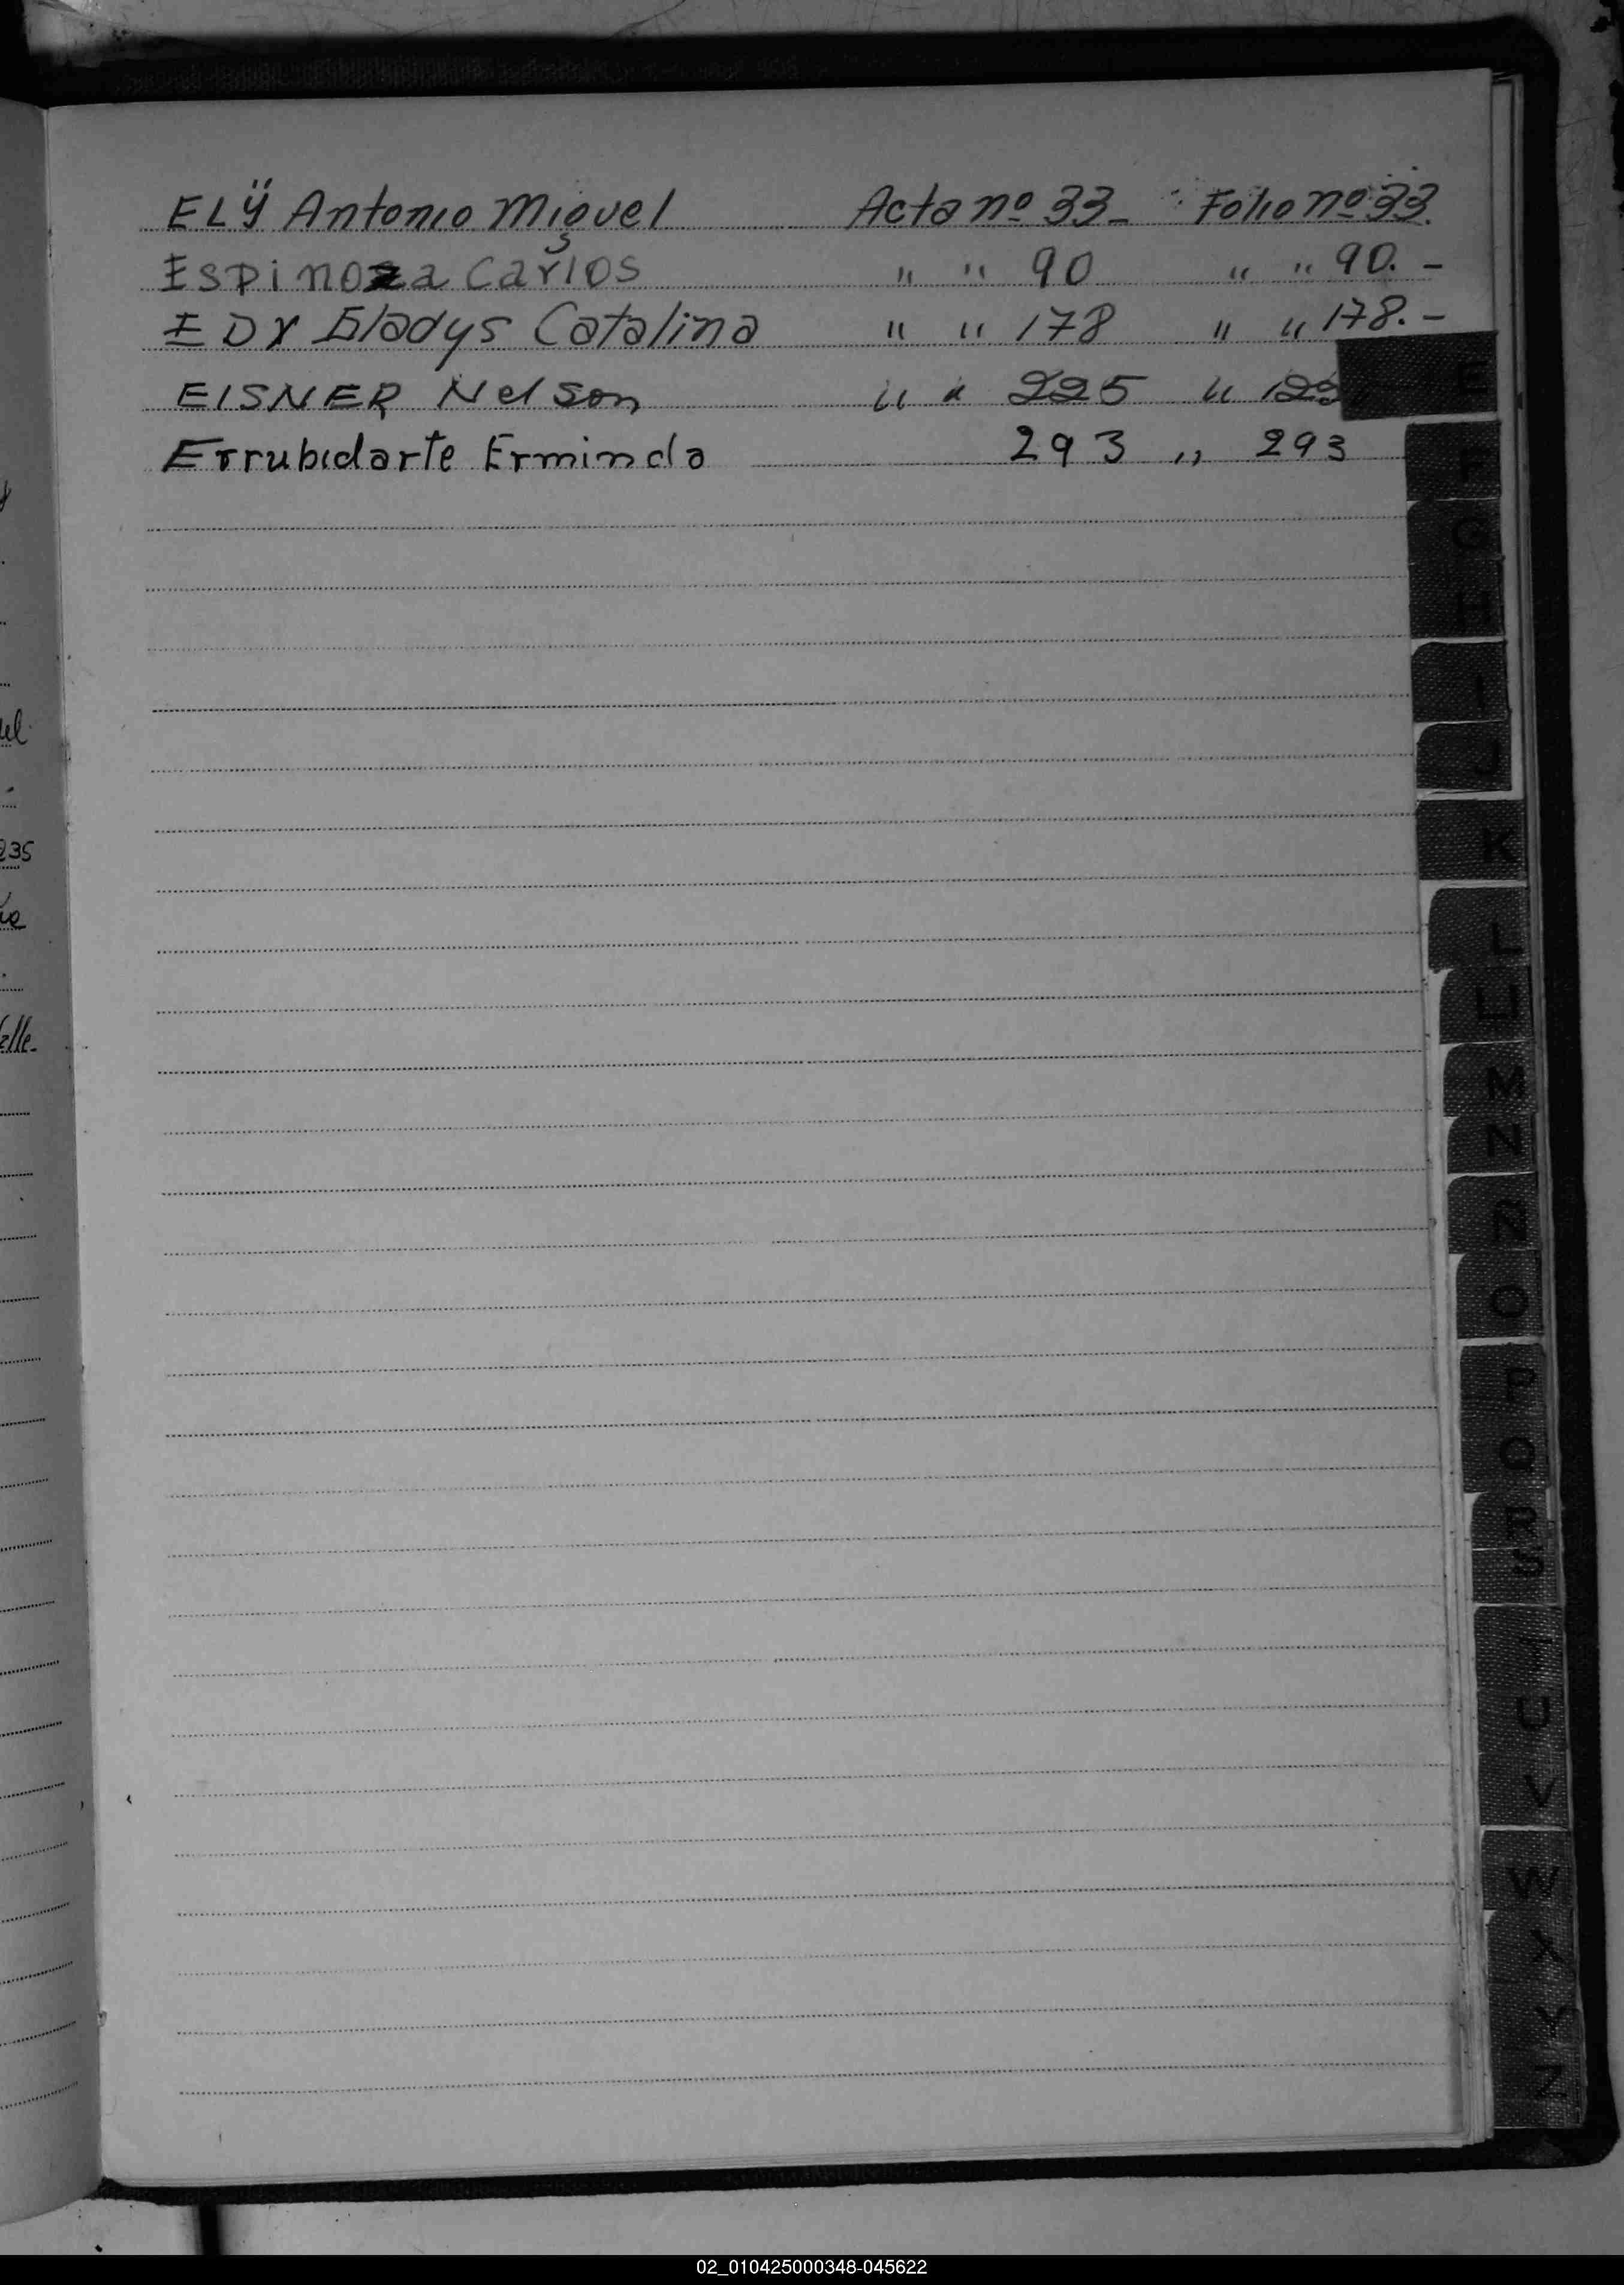 ELY Antonio Miguel Acta nº 33- Folio nº 33.
Espinoza Carlos " " 90 " " 90. -
EDY Gladys Catalina " " 178 " " 178. -
EISNER Nelson " " 225 "
E
Errubidarte Erminda 293 " 293
F
G
H
I
J
235
K
L
LL
M
N
Ñ
O
P
Q
R
S
T
U
V
W
X
Y
Z
02_010425000348-045622